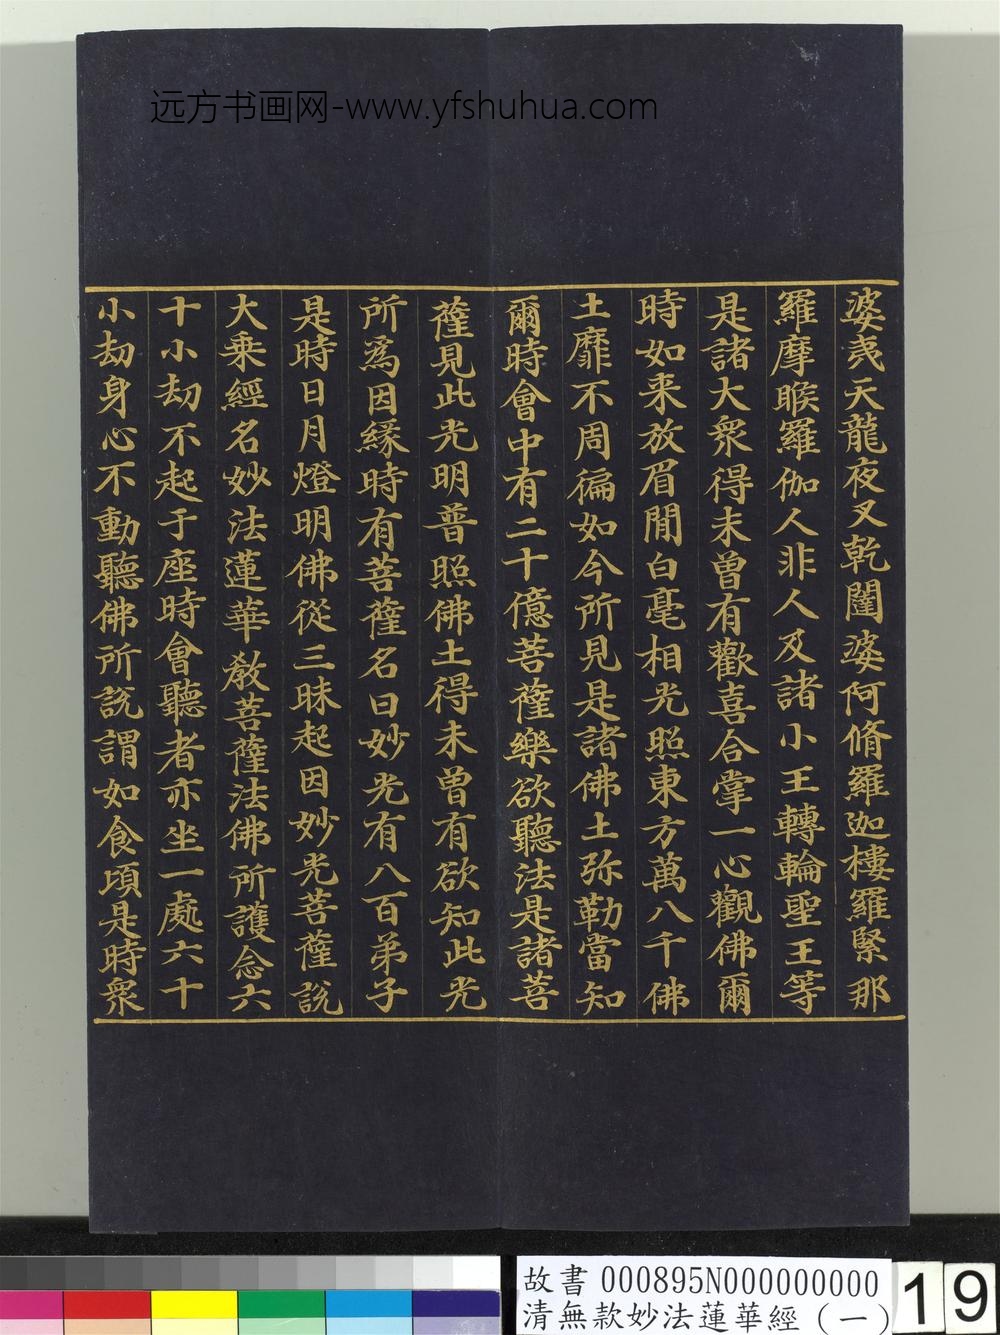 远方书画网-www.yfshuhua.com
婆夷天龍夜叉乾闥婆阿脩羅迦樓羅緊那
羅摩睺羅伽人非人及諸小王轉輪聖王等
是諸大衆得未曾有歡喜合掌一心觀佛爾
時如来放眉間白毫相光照東方萬八千佛
土靡不周徧如今所見是諸佛土弥勒當知
爾時會中有二十億菩薩樂欲聽法是諸菩
薩見此光明普照佛土得未曾有欲知此光
所為因緣時有菩薩名曰妙光有八百弟子
是時日月燈明佛從三昧起因妙光菩薩説
大乗經名妙法蓮華教菩薩法佛所護念六
十小劫不起于座時會聽者亦坐一處六十
小劫身心不動聽佛所説謂如食頃是時衆
故書 000895N000000000
清無款妙法蓮華經（一）
19